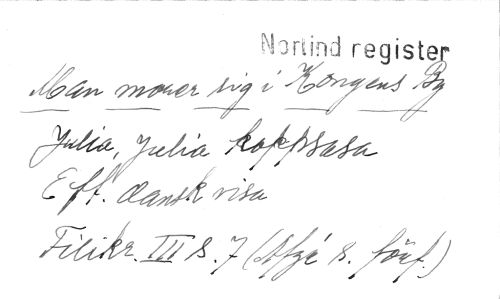 Norlind register
Man morer sig i Kongens By
Julia, Julia hoppsasa
Eft. dansk visa
Filikr. III s. 7 (s. förf.)